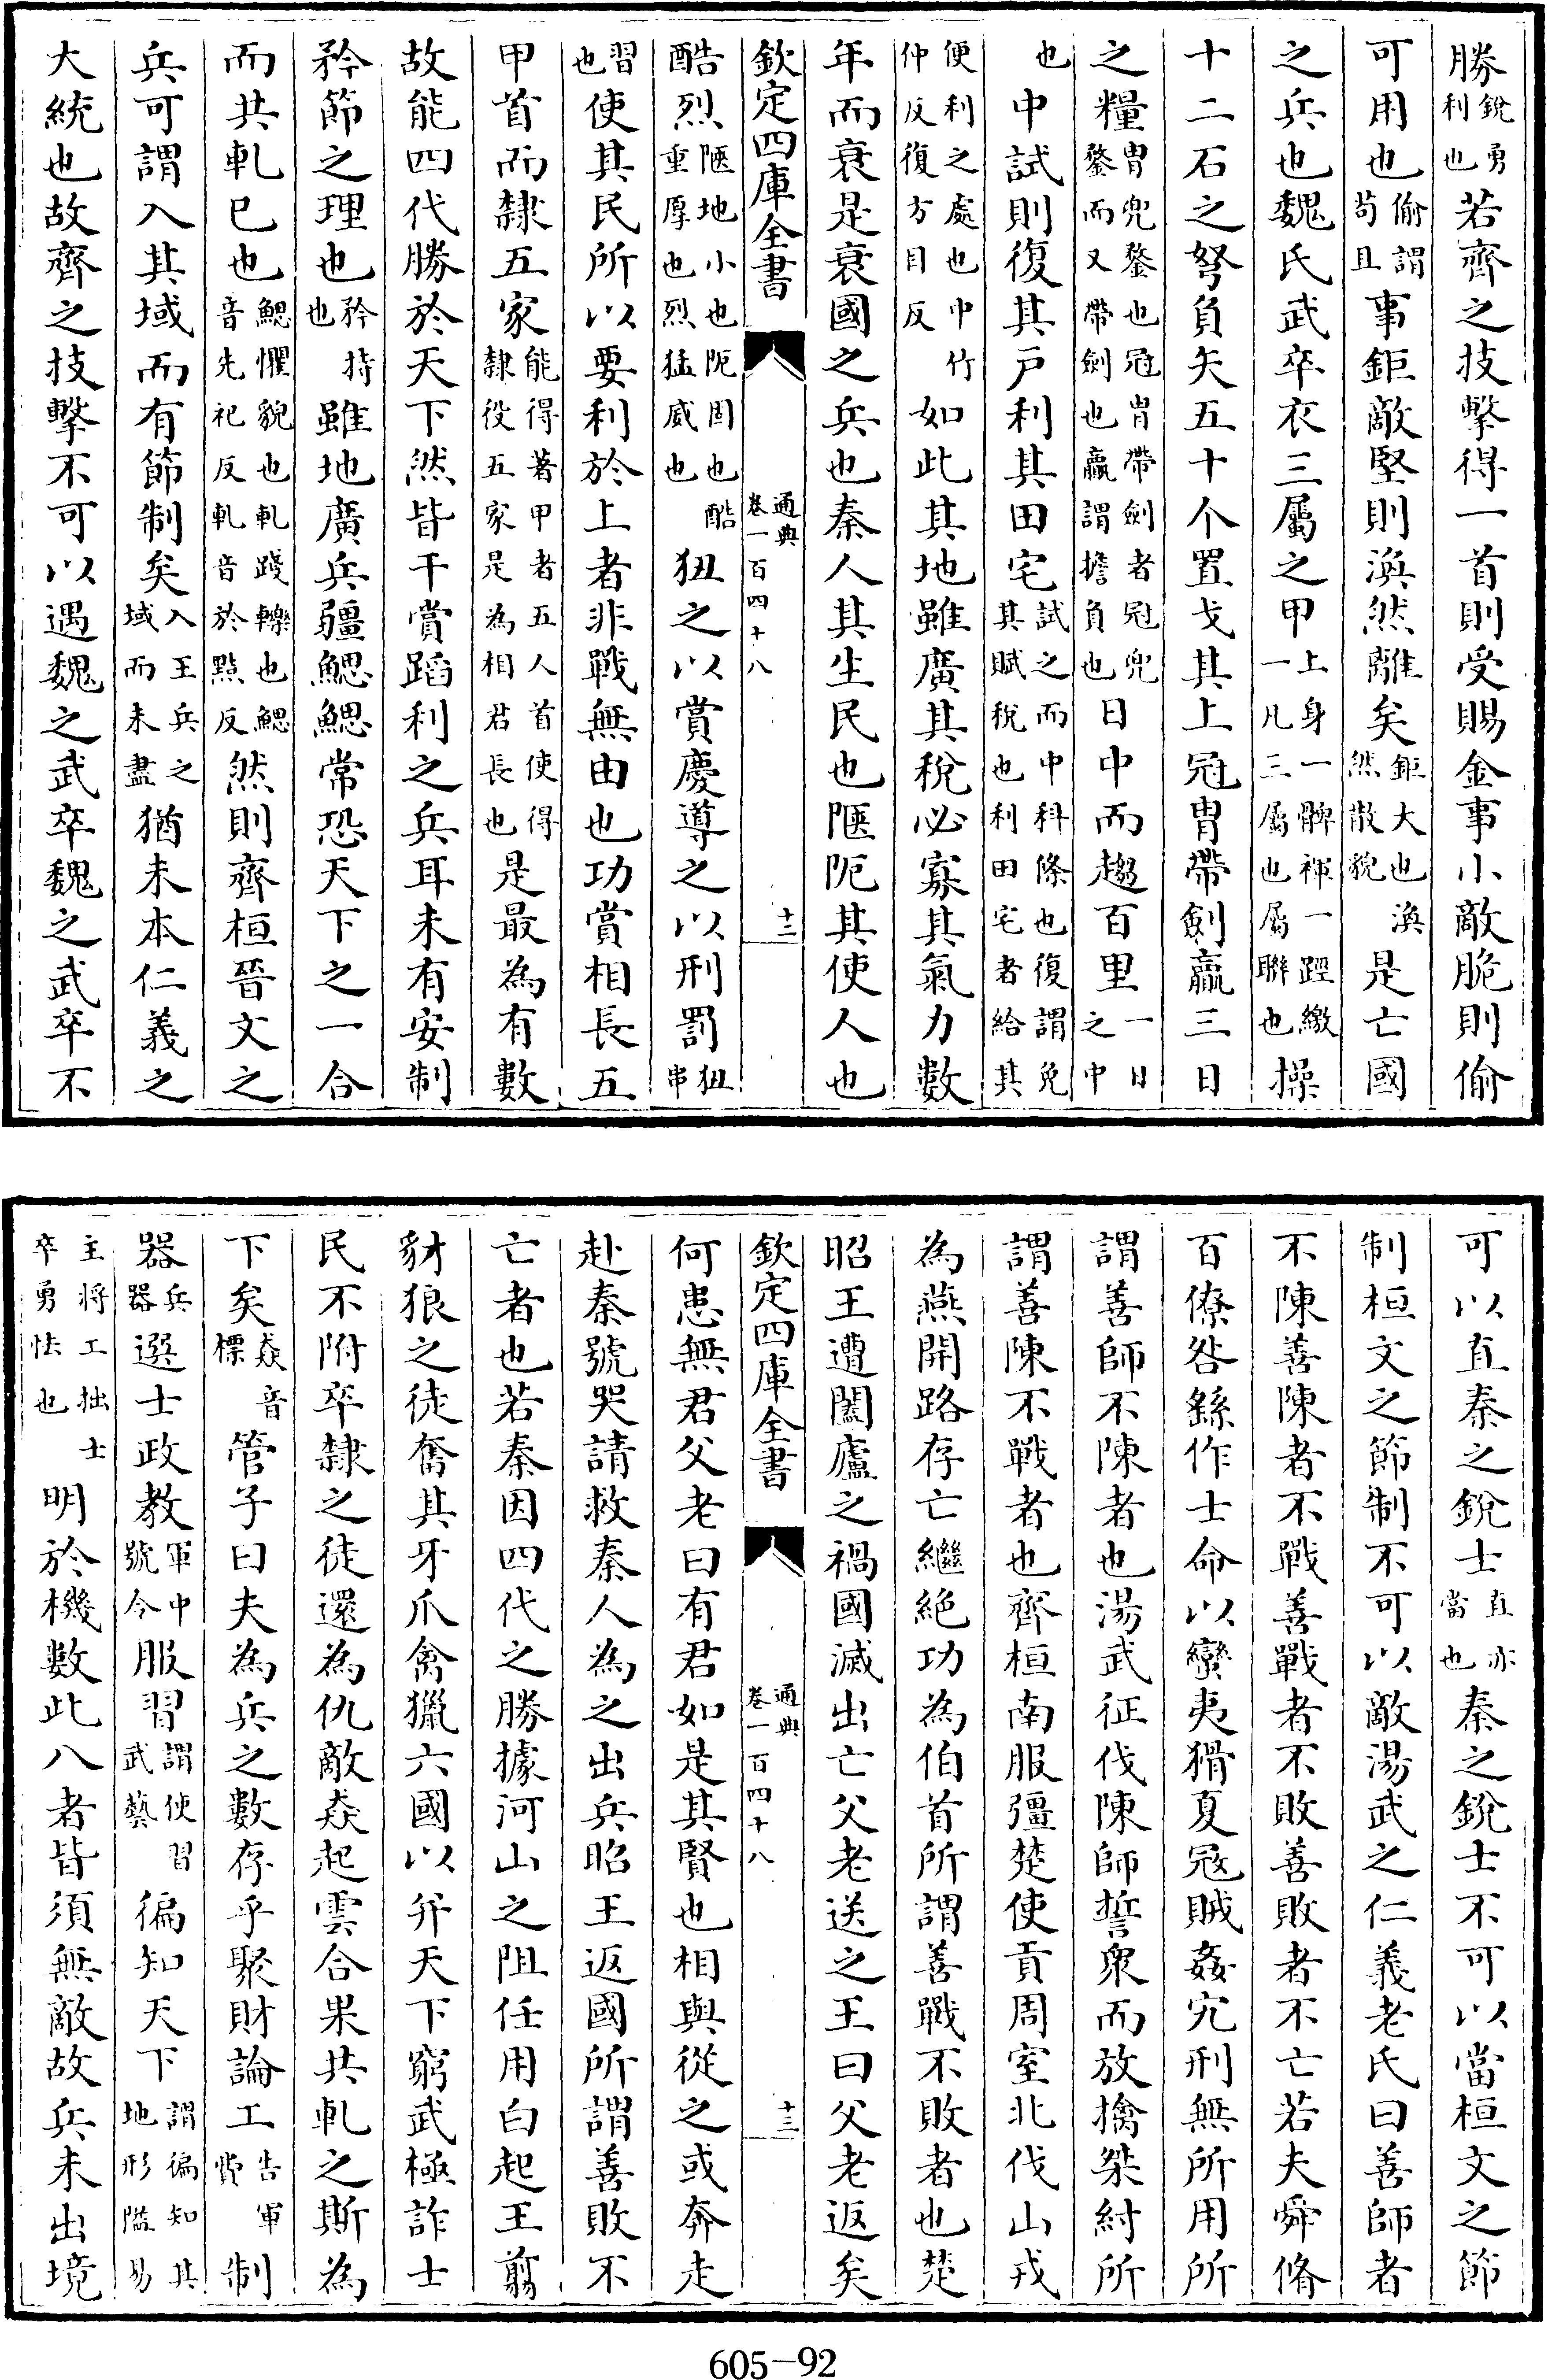 勝銳勇利也若齊之技擊得一首則受賜金事小敵脆則偷
可用也偷謂茍且事鉅敵堅則渙然離矣鉅大也渙然散貌是亡國
之兵也魏氏武卒衣三屬之甲上身一髀褌一踁繳一凡三屬也屬聯也操
十二石之弩負矢五十个置戈其上冠胄帶劍贏三日
之糧胄兜鍪也冠胄帶劍者冠兜鍪而又帶劍也贏謂擔負也日中而趨百里一日之中
也中試則復其戶利其田宅試之而中科條也復謂免其賦稅也利田宅者給其
便利之處也中竹仲反復方目反如此其地雖廣其稅必寡其氣力數
年而衰是衰國之兵也秦人其生民也陿阨其使人也
欽定四庫全書 通典卷一百四十八 十二
酷烈陿地小也阨固也酷重厚也烈猛威也狃之以賞慶導之以刑罰狃串
習也使其民所以要利於上者非戰無由也功賞相長五
甲首而隸五家能得著甲者五人首使得隸役五家是為相君長也是最為有數
故能四代勝於天下然皆干賞蹈利之兵耳未有安制
矜節之理也矜持也雖地廣兵彊鰓鰓常恐天下之一合
而共軋已也鰓懼貌也軋踐轢也鰓音先祀反軋音於點反然則齊桓晉文之
兵可謂入其域而有節制矣入王兵之域而未盡猶未本仁義之
大統也故齊之技擊不可以遇魏之武卒魏之武卒不
可以直秦之銳士直亦當也秦之銳士不可以當桓文之節
制桓文之節制不可以敵湯武之仁義老氏曰善師者
不陳善陳者不戰善戰者不敗善敗者不亡若夫舜脩
百僚咎繇作士命以蠻夷猾夏冦賊姦宄刑無所用所
謂善師不陳者也湯武征伐陳師誓衆而放擒桀紂所
謂善陳不戰者也齊桓南服彊楚使貢周室北伐山戎
為燕開路存亡繼絕功為伯首所謂善戰不敗者也楚
昭王遭闔廬之禍國滅出亡父老送之王曰父老返矣
欽定四庫全書 通典卷一百四十八 十三
何患無君父老曰有君如是其賢也相與從之或奔走
赴秦號哭請救秦人為之出兵昭王返國所謂善敗不
亡者也若秦因四代之勝據河山之阻任用白起王翦
豺狼之徒奮其牙爪禽獵六國以并天下窮武極詐士
民不附卒隸之徒還為仇敵猋起雲合果共軋之斯為
下矣猋音標管子曰夫為兵之數存乎聚財論工告軍費制
器兵器選士政教軍中號令服習謂使習武藝徧知天下謂徧知其地形隘易
主將工拙士卒勇怯也明於機數此八者皆須無敵故兵未出境
605-92